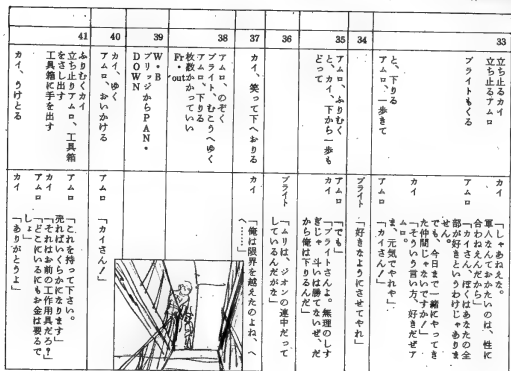 33
立ち止るカイ
立ち止るアムロ
ブライトもくる
アムロ、一歩きて
と、下りる
カイ
「しゃあねえな。
軍人なんておかたいのは、性に
合わねえんだから」
アムロ
「カイさん、ぼくはあなたの全
部が好きというわけじゃありま
せん。
でも、今日まで一緒にやってき
た仲間じゃないですか！」
カイ
「そういう言い方、好きだぜア
ムロ。
ま、元気でやれや」
アムロ
「カイさん！」
34
ブライト
「好きなようにさせてやれ」
35
アムロ、ふりむく
と、カイ、下から一歩も
どって
アムロ
「でも」
カイ
「ブライトさんよ。無理のしす
ぎじゃ 斗いは勝てないぜ、だ
から俺は下りるんだ」
36
ブライト
「ムリは、ジオンの連中だって
しているんだがな」
37
カイ、笑って下へおりる
カイ
「俺は限界を越えたのよね、へ
へ……」
38
アムロ、のぞく
ブライト、むこうへゆく
アムロ、下りる
枚数かかっていい
Fr・out
39
W・B
ブリッジからPAN・
DOWN
40
カイ、ゆく
アムロ、おいかける
アムロ
「カイさん！」
41
ふりむくカイ
立ち止りアムロ、工具箱
をさし出す
工具箱に手を出す
カイ、うけとる
アムロ
「これを持って下さい。
売ればいくらかになります」
カイ
「それはお前の工作用具だろ？」
アムロ
「どこにいるにもお金は要るで
しょ」
カイ
「ありがとうよ」